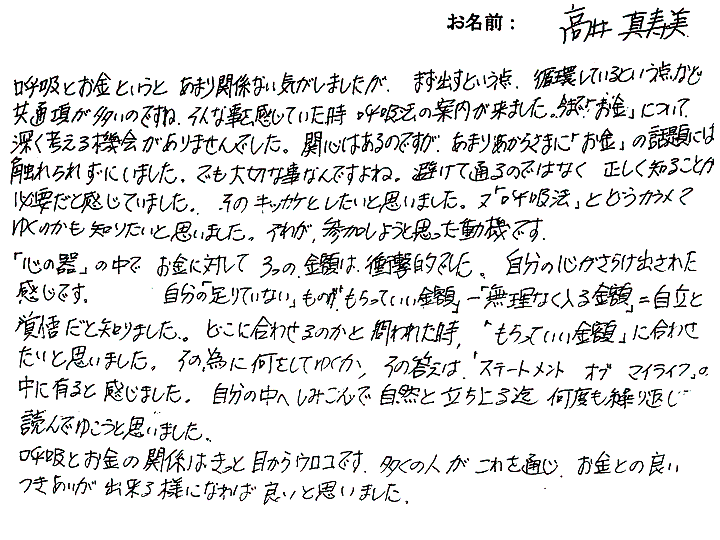 お名前： 高井 真寿美
呼吸とお金というと あまり関係ない気がしましたが、まず出すという点、循環しているという点など
共通項が多いのですね。そんな事を感じていた時 呼吸法の案内が来ました。「お金」について
深く考える機会がありませんでした。関心はあるのですが、あまりあからさまに「お金」の話題には
触れられずにいました。でも大切な事なんですよね。避けて通るのではなく 正しく知ることが
必要だと感じていました。そのキッカケとしたいと思いました。又「呼吸法」とどうカラメて
ゆくのかも知りたいと思いました。それが、参加しようと思った動機です。
「心の器」の中で お金に対して 3つの金額は、衝撃的でした。自分の心がさらけ出された
感じです。 自分の「足りていない」ものが「もらっていい金額」－「無理なく入る金額」＝自立と
覚悟だと知りました。どこに合わせるのかと問われた時、「もらっていい金額」に合わせ
たいと思いました。その為に何をしてゆくか、その答えは、「ステートメント オブ マイライフ」の
中に有ると感じました。自分の中へしみこんで 自然と立ち上る迄 何度も繰り返し
読んでゆこうと思いました。
呼吸とお金の関係はきっと目からウロコです。多くの人が これを通じ、お金との良い
つきあいが 出来る様になれば 良いと思いました。